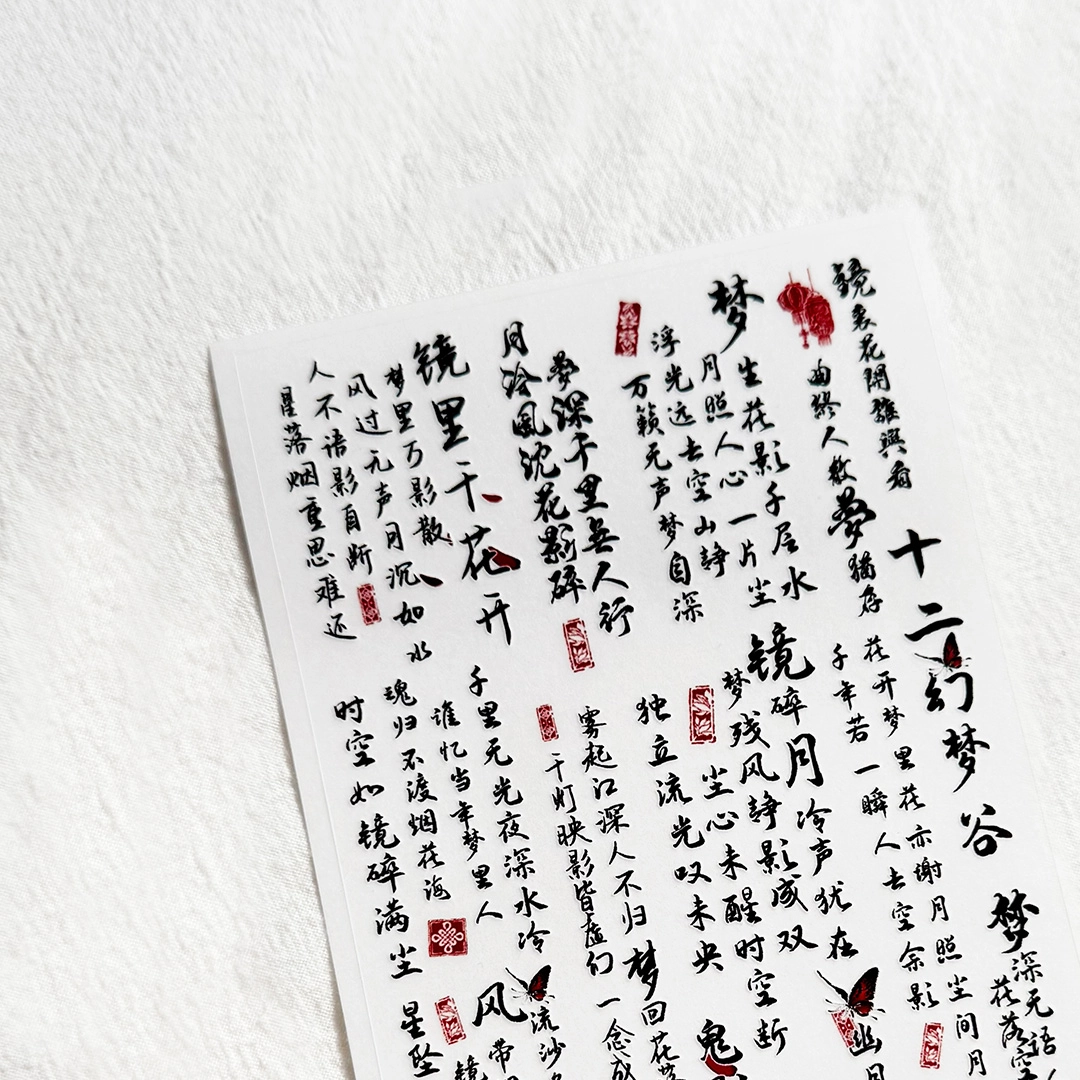 镜裏花開誰與看
曲终人散夢猶存
梦生花影千层水
月照人心一片尘
浮光远去空山静
万籁无声梦自深
夢深千里無人行
月冷風沈花影碎
镜里千花开
梦里万影散
风过无声月沉如水
人不语影自断
星落烟重思难还
十二幻梦谷
花开梦里花亦谢
千年若一瞬
人去空余影
月照尘间月
梦深无语
花落空
镜碎月冷声犹在
梦残风静影成双
尘心未醒时空断
独立流光叹未央
雾起江深人不归
千灯映影皆虚幻
梦回花
一念成
千里无光夜深水冷
谁忆当年梦里人
魂归不渡烟花海
时空如镜碎满尘
幽月
鬼
风流沙
带
镜
星坠